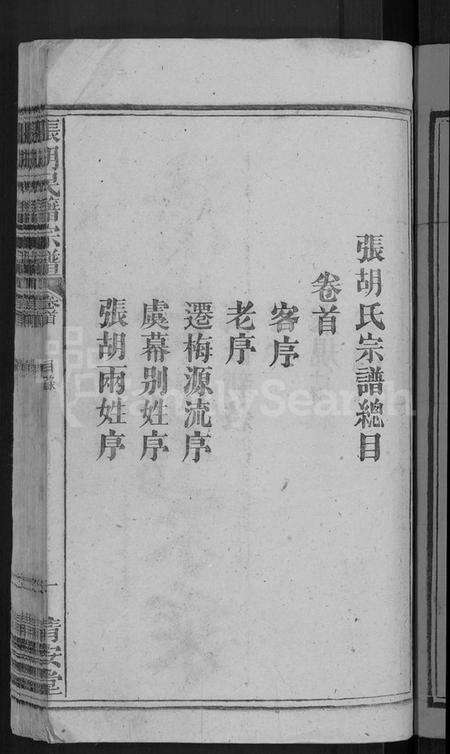 張胡氏宗譜總目
卷首
客序
老序
遷梅源流序
虞幕别姓序
張胡兩姓序
張胡氏譜宗譜 卷首 目錄 一 清安堂
FamilySearch